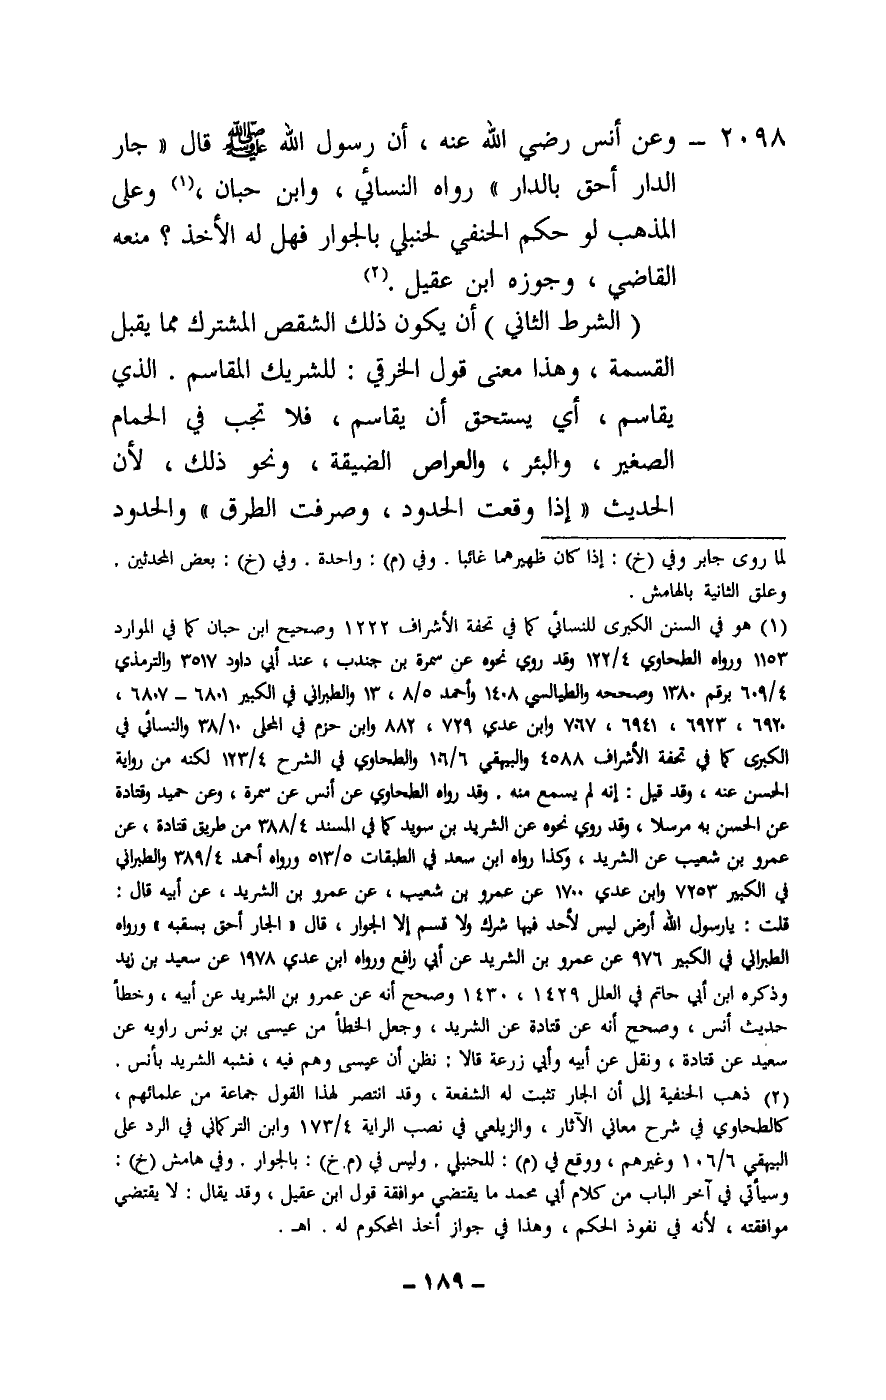 ٢٠٩٨ – وعن أنس رضي الله عنه ، أن رسول الله ﷺ قال « جار
الدار أحق بالدار » رواه النسائي ، وابن حبان ،(١) وعلى
المذهب لو حكم الحنفي لحنبلي بالجوار فهل له الأخذ ؟ منعه
القاضي ، وجوزه ابن عقيل .(٢)
( الشرط الثاني ) أن يكون ذلك الشقص المشترك مما يقبل
القسمة ، وهذا معنى قول الخرقي : للشريك المقاسم . الذي
يقاسم ، أي يستحق أن يقاسم ، فلا تجب في الحمام
الصغير ، والبئر ، والعراص الضيقة ، ونحو ذلك ، لأن
الحديث « إذا وقعت الحدود ، وصرفت الطرق » والحدود
لما روى جابر وفي (خ) : إذا كان ظهيرهما غائبا . وفي (م) : واحدة . وفي (خ) : بعض المحدثين .
وعلق الثانية بالهامش .
(١) هو في السنن الكبرى للنسائي كما في تحفة الأشراف ١٢٢٢ وصحيح ابن حبان كما في الموارد
١١٥٣ ورواه الطحاوي ١٢٢/٤ وقد روي نحوه عن سمرة بن جندب ، عند أبي داود ٣٥١٧ والترمذي
٦٠٩/٤ برقم ١٣٨٠ وصححه والطيالسي ١٤٠٨ وأحمد ٨/٥ ، ١٣ والطبراني في الكبير ٦٨٠١ – ٦٨٠٧ ،
٦٩٢٠ ، ٦٩٢٣ ، ٦٩٤١ ، ٧٠٦٧ وابن عدي ٧٢٩ ، ٨٨٢ وابن حزم في المحلى ٣٨/١٠ والنسائي في
الكبرى كما في تحفة الأشراف ٤٥٨٨ والبيهقي ١٠٦/٦ والطحاوي في الشرح ١٢٣/٤ لكنه من رواية
الحسن عنه ، وقد قيل : إنه لم يسمع منه . وقد رواه الطحاوي عن أنس عن سمرة ، وعن حميد وقتادة
عن الحسن به مرسلا ، وقد روي نحوه عن الشريد بن سويد كما في المسند ٣٨٨/٤ من طريق قتادة ، عن
عمرو بن شعيب عن الشريد ، وكذا رواه ابن سعد في الطبقات ٥١٣/٥ ورواه أحمد ٣٨٩/٤ والطبراني
في الكبير ٧٢٥٣ وابن عدي ١٧٠٠ عن عمرو بن شعيب ، عن عمرو بن الشريد ، عن أبيه قال :
قلت : يارسول الله أرض ليس لأحد فيها شرك ولا قسم إلا الجوار ، قال « الجار أحق بسقبه » ورواه
الطبراني في الكبير ٩٧٦ عن عمرو بن الشريد عن أبي رافع ورواه ابن عدي ١٩٧٨ عن سعيد بن زيد
وذكره ابن أبي حاتم في العلل ١٤٢٩ ، ١٤٣٠ وصحح أنه عن عمرو بن الشريد عن أبيه ، وخطأ
حديث أنس ، وصحح أنه عن قتادة عن الشريد ، وجعل الخطأ من عيسى بن يونس راويه عن
سعيد عن قتادة ، ونقل عن أبيه وأبي زرعة قالا : نظن أن عيسى وهم فيه ، فشبه الشريد بأنس .
(٢) ذهب الحنفية إلى أن الجار تثبت له الشفعة ، وقد انتصر لهذا القول جماعة من علمائهم ،
كالطحاوي في شرح معاني الآثار ، والزيلعي في نصب الراية ١٧٣/٤ وابن التركماني في الرد على
البيهقي ١٠٦/٦ وغيرهم ، ووقع في (م) : للحنبلي . وليس في (م.خ) : بالجوار . وفي هامش (خ) :
وسيأتي في آخر الباب من كلام أبي محمد ما يقتضي موافقة قول ابن عقيل ، وقد يقال : لا يقتضي
موافقته ، لأنه في نفوذ الحكم ، وهذا في جواز أخذ المحكوم له . اهـ .
– ١٨٩ –